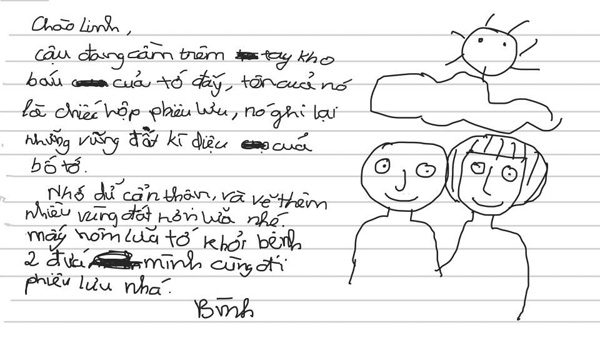 Chào Linh,
cậu đang cầm trêm tay kho
báu của tớ đấy, tên cuả nó
là chiếc hộp phiêu lưu, nó ghi lại
những vững đất kì diệu cuả
bố tớ.
Nhớ dữ cẩn thân, và vẽ thêm
nhiều vùng đất hơn lửa nhé.
mấy hôm lữa tớ khỏi bệnh
2 đứa mình cùng đi
phiêu lưu nhá.
Bình